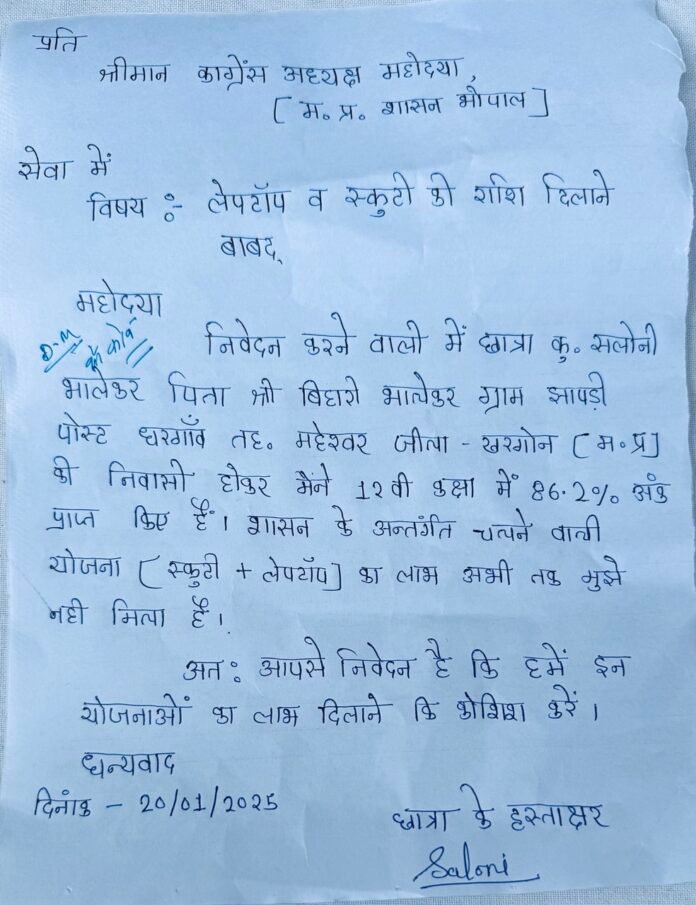 प्रति
श्रीमान काग्रेंस अध्यक्ष महोदया,
[म. प्र. शासन भोपाल]
सेवा में
विषय :- लेपटॉप व स्कुटी की राशि दिलाने
बाबद्
महोदया
D-M को कॉल
निवेदन करने वाली में छात्रा कु. सलोनी
भालेकर पिता श्री बिहारी भालेकर ग्राम झापड़ी
पोस्ट धरगाँव तह. महेश्वर जीला - खरगोन [म.प्र]
की निवासी होकर मैंने 12वी कक्षा में 86.2% अंक
प्राप्त किए हैं। शासन के अन्तर्गत चलने वाली
योजना [स्कुटी + लेपटॉप] का लाभ अभी तक मुझे
नही मिला है।
अत: आपसे निवेदन है कि हमें इन
योजनाओं का लाभ दिलाने कि कोशिश करें।
धन्यवाद
दिनांक - 20/01/2025
छात्रा के हस्ताक्षर
Saloni